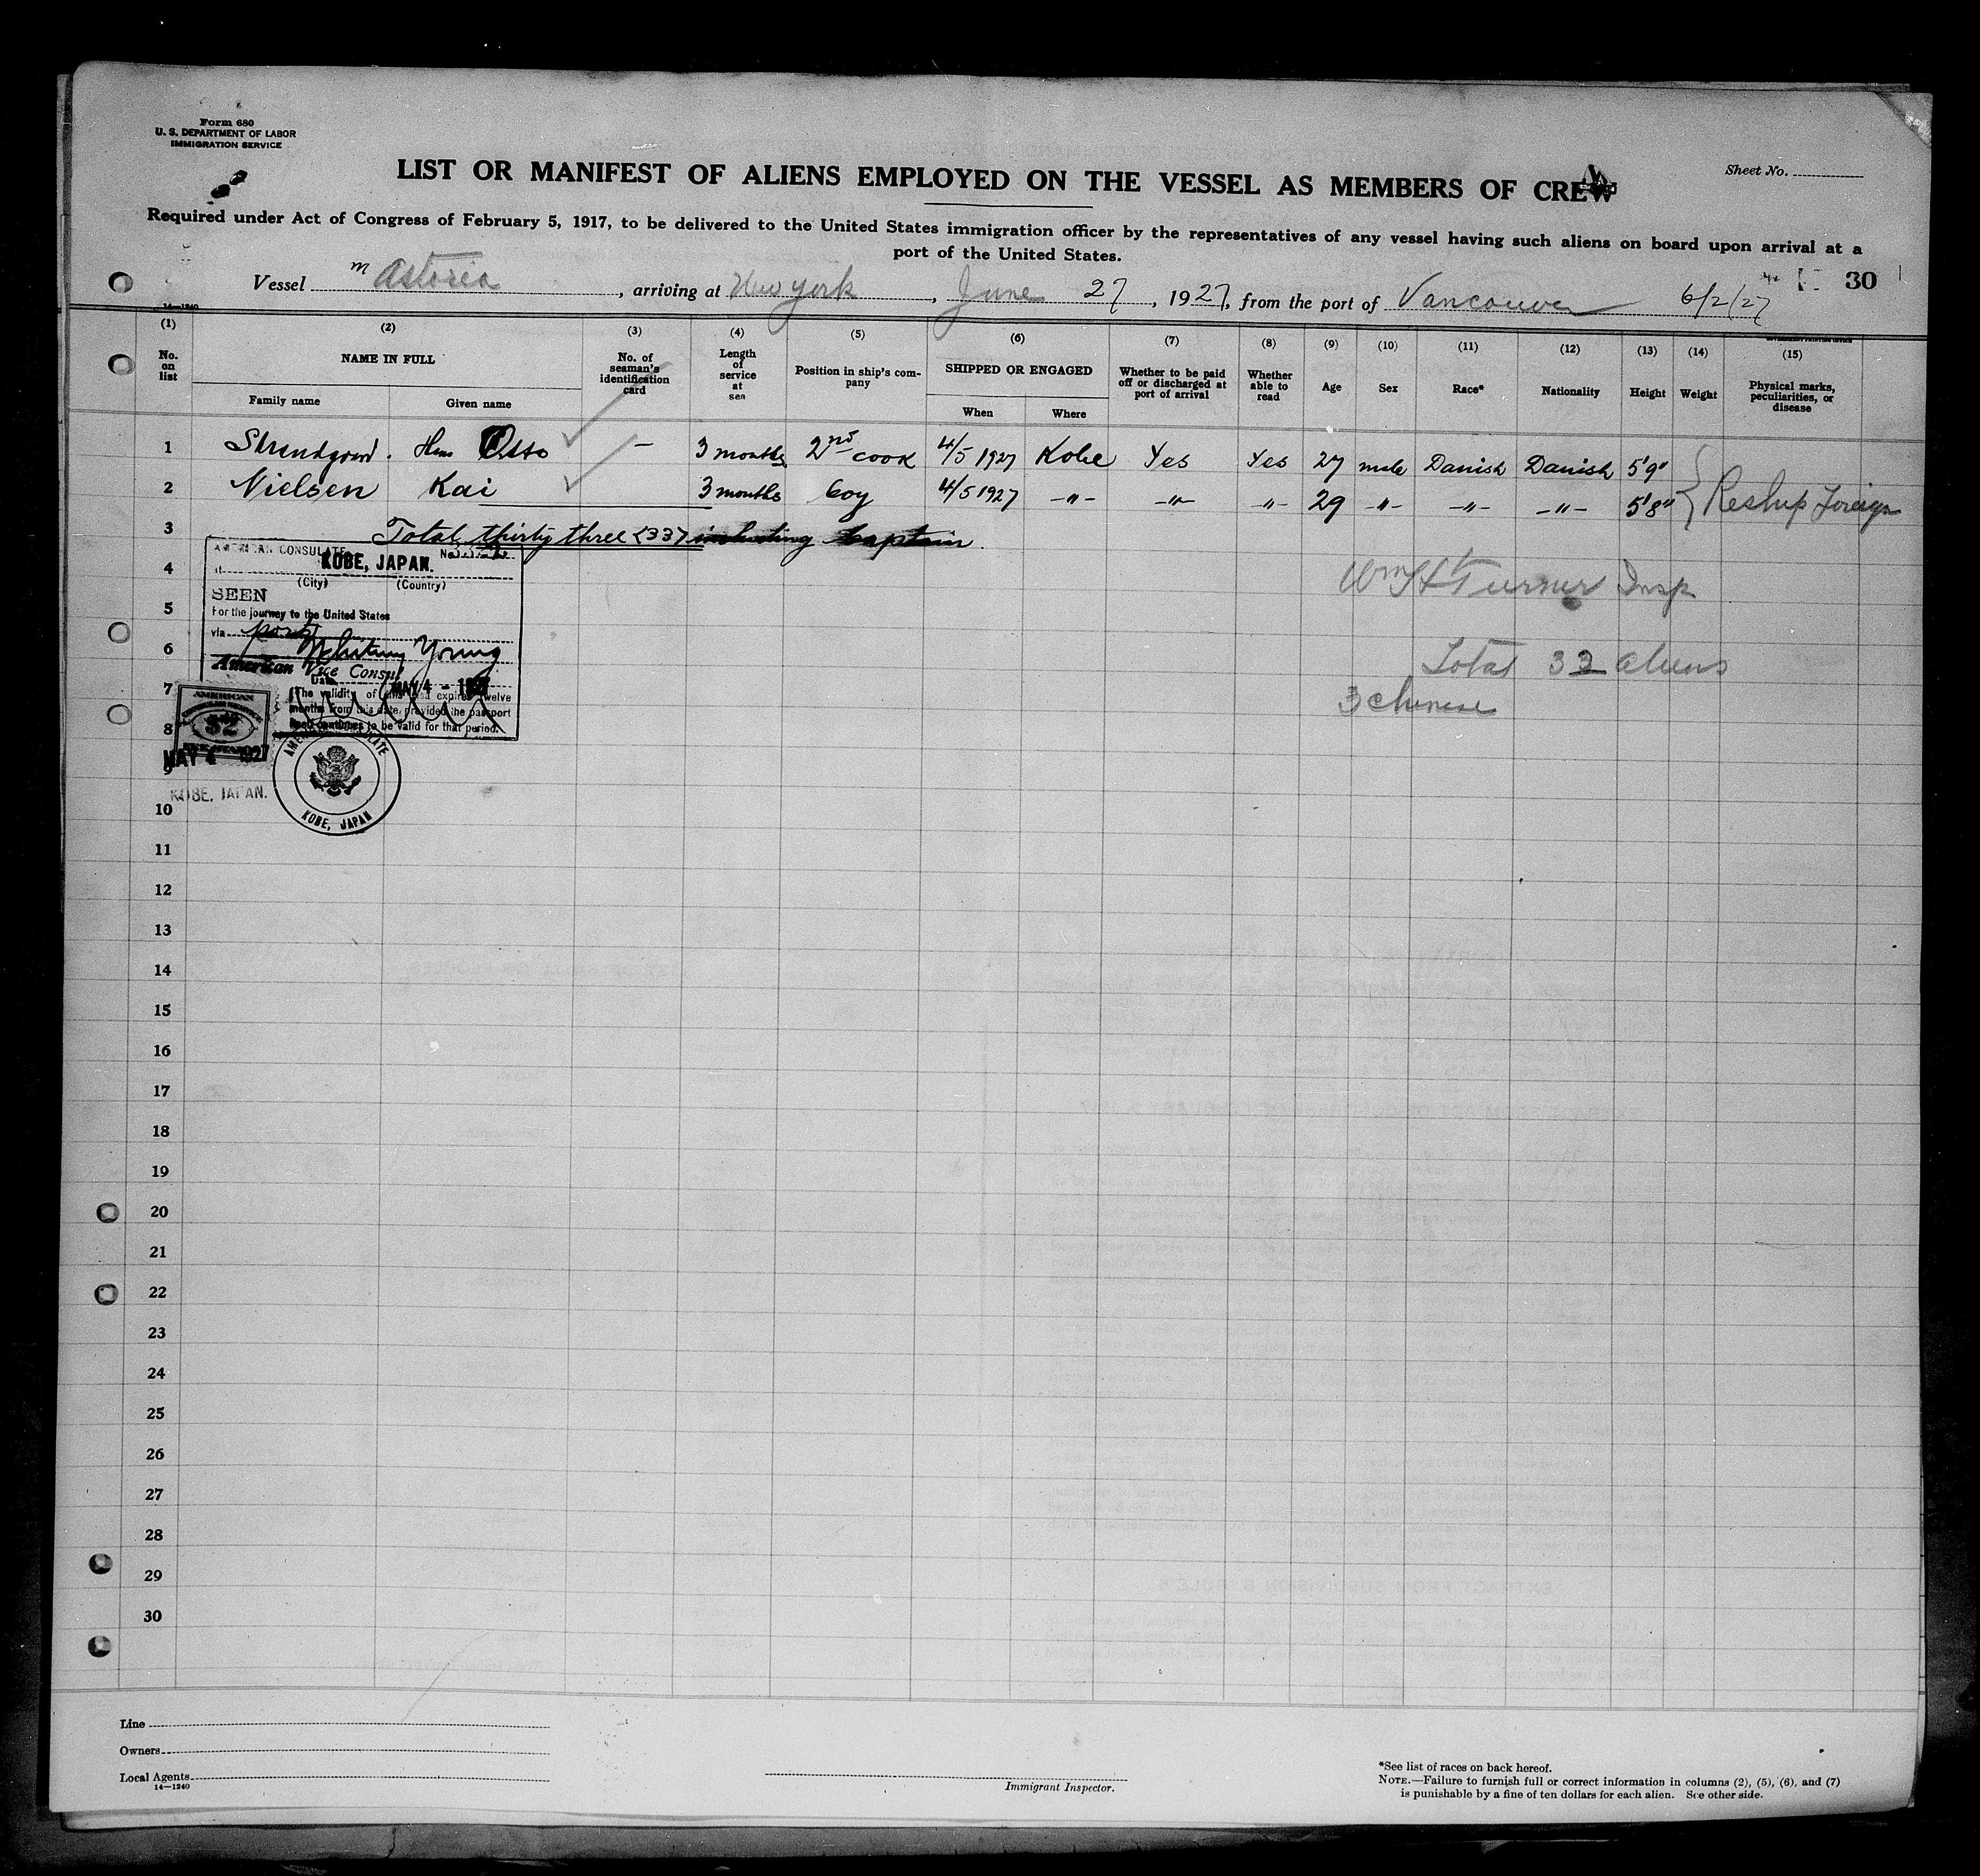 Form 680
U. S. DEPARTMENT OF LABOR
IMMIGRATION SERVICE
Sheet No.
LIST OR MANIFEST OF ALIENS EMPLOYED ON THE VESSEL AS MEMBERS OF CREW
Required under Act of Congress of February 5, 1917, to be delivered to the United States immigration officer by the representatives of any vessel having such aliens on board upon arrival at a
port of the United States.
Vessel m Astoria, arriving at New York, June 27, 1927, from the port of Vancouver 6/2/27
30
14—1240
(1) (2) (3) (4) (5) (6) (7) (8) (9) (10) (11) (12) (13) (14) (15)
No. on list
NAME IN FULL
Family name
Given name
No. of seaman's identification card
Length of service at sea
Position in ship's company
SHIPPED OR ENGAGED
When
Where
Whether to be paid off or discharged at port of arrival
Whether able to read
Age
Sex
Race*
Nationality
Height
Weight
Physical marks, peculiarities, or disease
1 Hans Otto — 3 months 2nd cook 4/5 1927 Kobe Yes Yes 27 male Danish Danish 5'9"
2 Nielsen Kai 3 months boy 4/5 1927 -"- -"- -"- 29 -"- -"- -"- 5'8" Reship Foreign
3 Total thirty three (33) including Captain
AMERICAN CONSULATE
at KOBE, JAPAN. No.
(City) (Country)
SEEN
For the journey to the United States
via ports
Whitney Young
American Vice Consul
Date MAY 4 - 1927
The validity of this visa expires twelve
months from this date, provided the passport
continues to be valid for that period.
AMERICAN
CONSULAR SERVICE
$2
MAY 4 1927
KOBE, JAPAN.
AMERICAN CONSULATE
KOBE, JAPAN
Wm H Turner Insp
Total 33 aliens
3 Chinese
4
5
6
7
8
9
10
11
12
13
14
15
16
17
18
19
20
21
22
23
24
25
26
27
28
29
30
Line
Owners
Local Agents
14—1240
Immigrant Inspector.
*See list of races on back hereof.
NOTE.—Failure to furnish full or correct information in columns (2), (5), (6), and (7)
is punishable by a fine of ten dollars for each alien. See other side.